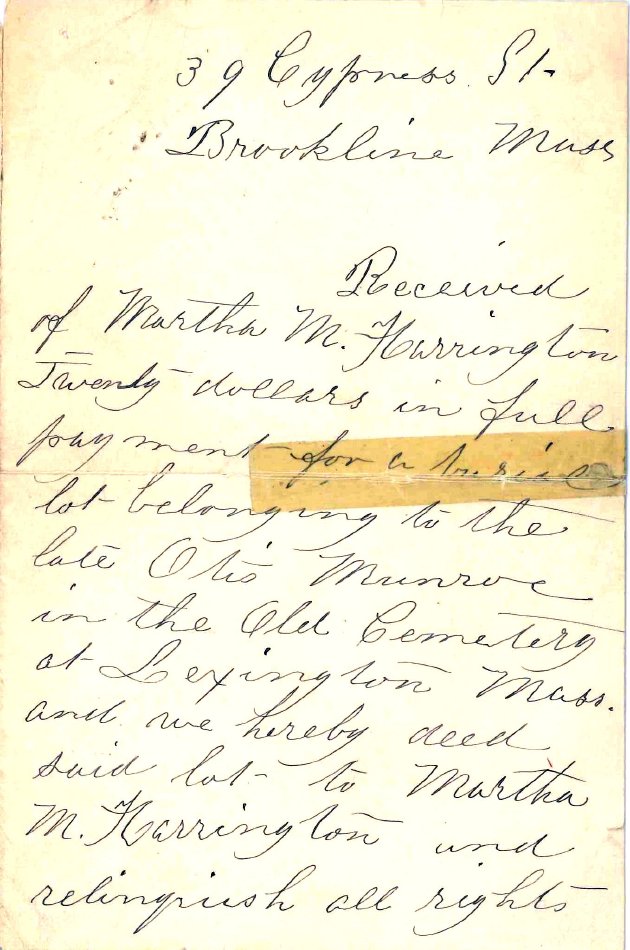 39 Cypress St.
Brookline Mass
Received
of Martha M. Harrington
Twenty dollars in full
payment for a burial
lot belonging to the
late Otis Munroe
in the Old Cemetery
at Lexington Mass.
and we hereby deed
said lot to Martha
M. Harrington and
relinquish all rights